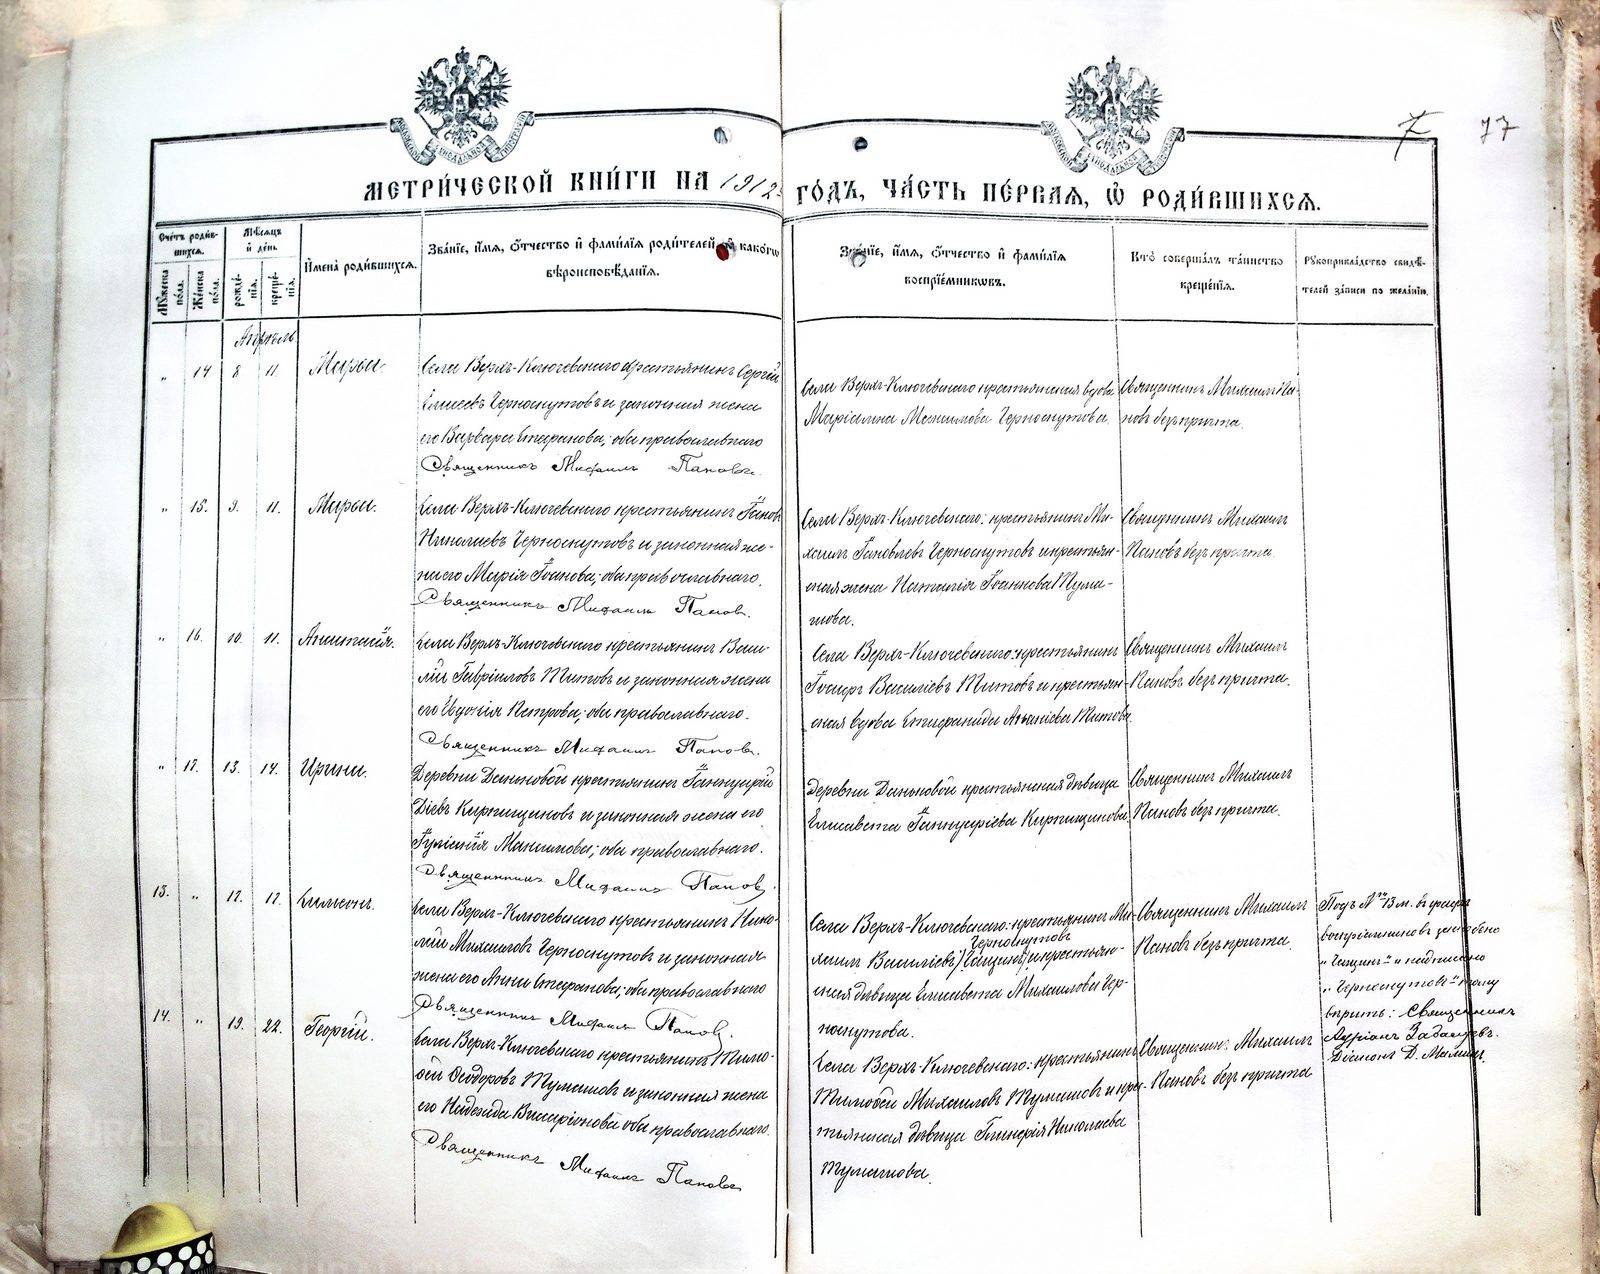 77
МЕТРИ́ЧЕСКОЙ КНИ́ГИ НА 1912
ГО́ДЪ, ЧА́СТЬ ПЕ́РВАЯ, Ѡ҆ РОДИ́ВШИХСЯ.
Сче́тъ роди́в-
шихся.
Му́жеска
по́ла.
Же́нска
по́ла.
Мѣ́сяцъ
и҆ де́нь
рожде́-
нїя.
креще́-
нїя.
И҆мена̀ роди́вшихся.
Зва́нїе, и҆́мя, ѻ҆́тчество и҆ фами́лїя роди́телей и҆ како́гѡ
вѣроисповѣ́данїя.
Зва́нїе, и҆́мя, ѻ҆́тчество и҆ фами́лїя
воспрїе́мниковъ.
Кто̀ соверша́лъ та́инство
креще́нїя.
Рукоприкла́дство свидѣ́-
телей за́писи по жела́нїю.
Апрѣль
" 14 8 11 Марѳа.
Села Верхъ-Ключевского крестьянинъ Сергій
Елисеевъ Черноскутовъ и законная жена
его Варвара Стефанова; оба православнаго
Священникъ Михаилъ Пановъ.
Села Верхъ-Ключевского крестьянская вдова
Маріамна Максимова Черноскутова.
Священникъ Михаилъ Па-
новъ безъ причта.
" 15. 9. 11. Марѳа.
Села Верхъ-Ключевского крестьянинъ Іаковъ
Николаевъ Черноскутовъ и законная же-
на его Марія Іоанова; оба православнаго.
Священникъ Михаилъ Пановъ.
Села Верхъ-Ключевского: крестьянинъ Ми-
хаилъ Іаковлевъ Черноскутовъ и крестьян-
ская жена Наталія Іоаннова Тума-
шова.
Священникъ Михаилъ
Пановъ безъ причта.
" 16. 10. 11. Анастасія.
Села Верхъ-Ключевского крестьянинъ Васи-
лій Гавріиловъ Титовъ и законная жена
его Евдокія Петрова; оба православнаго.
Священникъ Михаилъ Пановъ.
Села Верхъ-Ключевского: крестьянинъ
Іосифъ Василіевъ Титовъ и крестьян-
ская вдова Епифанида Ананіева Титова.
Священникъ Михаилъ
Пановъ безъ причта.
" 17. 13. 14. Ирина.
Деревни Даньковой крестьянинъ Іаннуарій
Діевъ Кирпищиковъ и законная жена его
Іуліанія Максимова; оба православнаго.
Священникъ Михаилъ Пановъ.
Деревни Даньковой крестьянская дѣвица
Елисавета Іаннуаріева Кирпищикова.
Священникъ Михаилъ
Пановъ безъ причта.
13. " 17. 17. Симеонъ.
Села Верхъ-Ключевского крестьянинъ Нико-
лай Михаиловъ Черноскутовъ и законная
жена его Анна Стефанова; оба православнаго
Священникъ Михаилъ Пановъ.
Села Верхъ-Ключевского: крестьянинъ Ми-
Черноскутовъ
хаилъ Василіевъ и крестьян-
ская дѣвица Елисавета Михаилова Чер-
носкутова.
Священникъ Михаилъ
Пановъ безъ причта.
Подъ № 13 м. въ графѣ
воспріемниковъ
и надписано
"Черноскутовъ" чему
вѣрить: Священникъ
Діаконъ
14. " 19. 22. Георгій.
Села Верхъ-Ключевского крестьянинъ Тимо-
ѳей Ѳеодоровъ Тумашовъ и законная жена
его Надежда Виссаріонова оба православнаго.
Священникъ Михаилъ Пановъ
Села Верхъ-Ключевского: крестьянинъ
Тимоѳей Михаиловъ Тумашовъ и кре-
стьянская дѣвица Гликерія Николаева
Тумашова.
Священникъ Михаилъ
Пановъ безъ причта